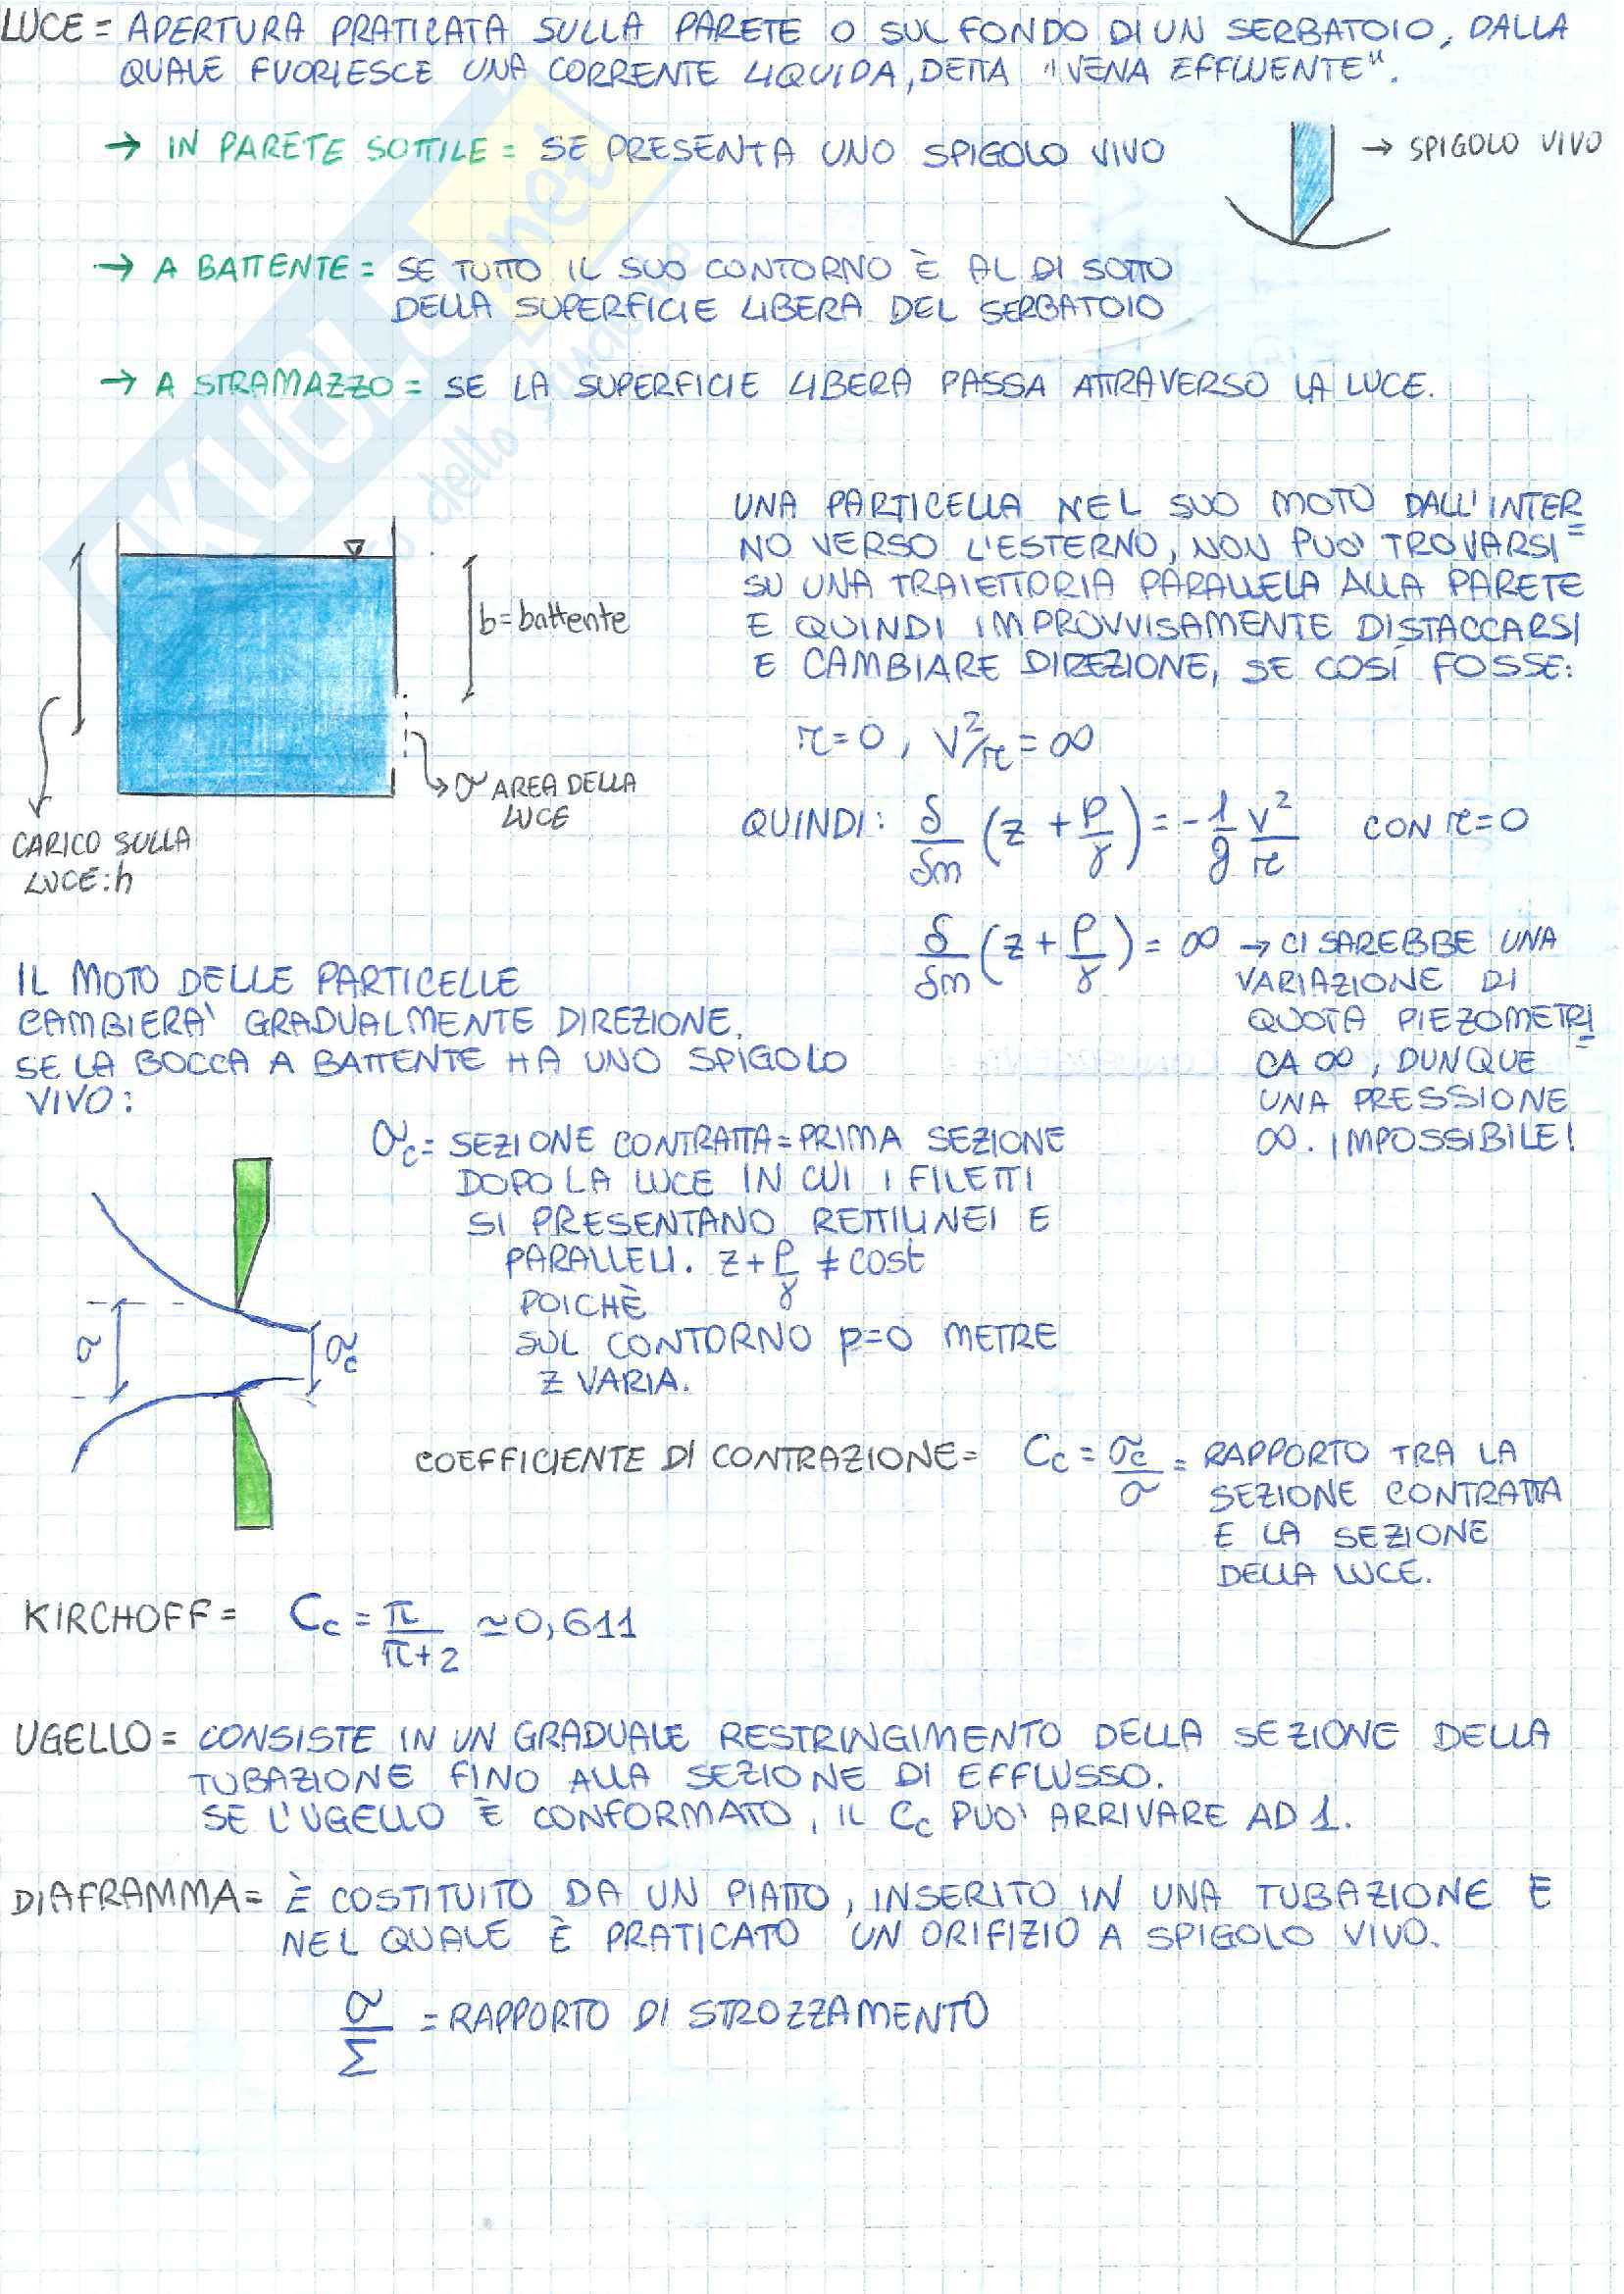 LUCE = APERTURA PRATICATA SULLA PARETE O SUL FONDO DI UN SERBATOIO, DALLA
QUALE FUORIESCE UNA CORRENTE LIQUIDA, DETTA "VENA EFFLUENTE".
→ IN PARETE SOTTILE = SE PRESENTA UNO SPIGOLO VIVO
→ SPIGOLO VIVO
→ A BATTENTE = SE TUTTO IL SUO CONTORNO È AL DI SOTTO
DELLA SUPERFICIE LIBERA DEL SERBATOIO
→ A STRAMAZZO = SE LA SUPERFICIE LIBERA PASSA ATTRAVERSO LA LUCE.
UNA PARTICELLA NEL SUO MOTO DALL'INTER=
NO VERSO L'ESTERNO, NON PUO' TROVARSI
SU UNA TRAIETTORIA PARALLELA ALLA PARETE
E QUINDI IMPROVVISAMENTE DISTACCARSI
E CAMBIARE DIREZIONE, SE COSÍ FOSSE:
b = battente
r=0, V²/r = ∞
σ AREA DELLA
LUCE
CARICO SULLA
LUCE: h
QUINDI: δ/δm (z + p/γ) = - 1/g v²/r CON r=0
δ/δm (z + p/γ) = ∞ → CI SAREBBE UNA
VARIAZIONE DI
QUOTA PIEZOMETRI=
CA ∞, DUNQUE
UNA PRESSIONE
∞. IMPOSSIBILE!
IL MOTO DELLE PARTICELLE
CAMBIERA' GRADUALMENTE DIREZIONE.
SE LA BOCCA A BATTENTE HA UNO SPIGOLO
VIVO:
σc = SEZIONE CONTRATTA = PRIMA SEZIONE
DOPO LA LUCE IN CUI I FILETTI
SI PRESENTANO RETTILINEI E
PARALLELI. z + p/γ ≠ cost
POICHÈ
SUL CONTORNO p=0 METRE
Z VARIA.
σ
σc
COEFFICIENTE DI CONTRAZIONE = Cc = σc/σ = RAPPORTO TRA LA
SEZIONE CONTRATTA
E LA SEZIONE
DELLA LUCE.
KIRCHOFF = Cc = π/(π+2) ≃ 0,611
UGELLO = CONSISTE IN UN GRADUALE RESTRINGIMENTO DELLA SEZIONE DELLA
TUBAZIONE FINO ALLA SEZIONE DI EFFLUSSO.
SE L'UGELLO È CONFORMATO, IL Cc PUO' ARRIVARE AD 1.
DIAFRAMMA = È COSTITUITO DA UN PIATTO, INSERITO IN UNA TUBAZIONE E
NEL QUALE È PRATICATO UN ORIFIZIO A SPIGOLO VIVO.
σ/Σ = RAPPORTO DI STROZZAMENTO